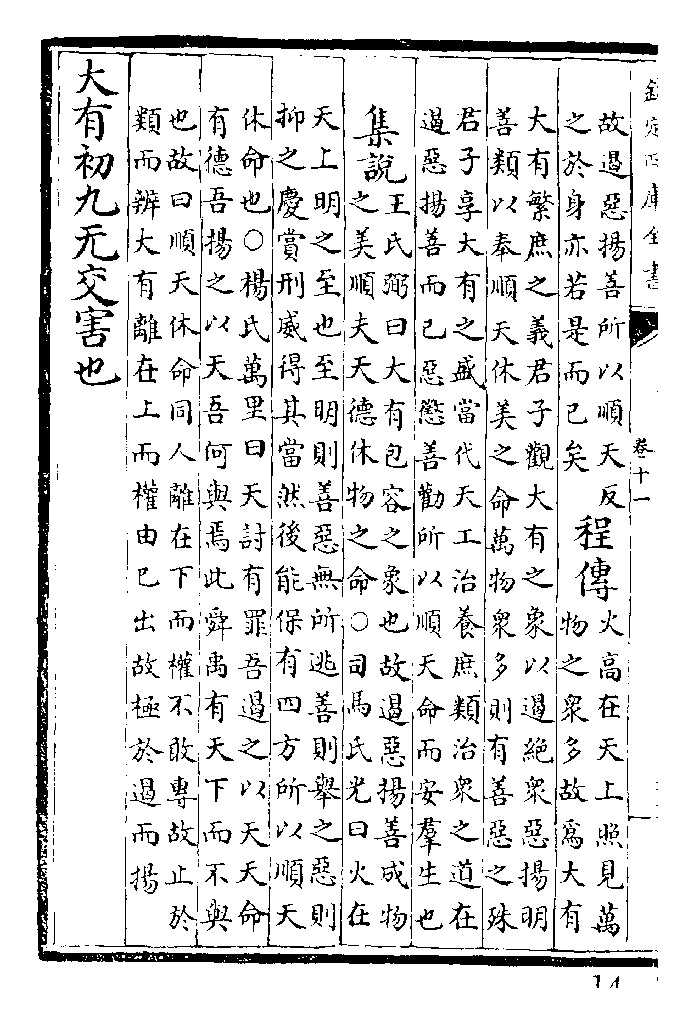 欽定四庫全書
卷十一
故遏惡揚善所以順天反
之於身亦若是而已矣
程傳
火高在天上照見萬
物之衆多故爲大有
大有繁庶之義君子觀大有之象以遏絕衆惡揚明
善類以奉順天休美之命萬物衆多則有善惡之殊
君子享大有之盛當代天工治養庶類治衆之道在
遏惡揚善而已惡懲善勸所以順天命而安羣生也
集說
王氏弼曰大有包容之象也故遏惡揚善成物
之美順夫天德休物之命○司馬氏光曰火在
天上明之至也至明則善惡無所逃善則舉之惡則
抑之慶賞刑威得其當然後能保有四方所以順天
休命也○楊氏萬里曰天討有罪吾遏之以天天命
有德吾揚之以天吾何與焉此舜禹有天下而不與
也故曰順天休命同人離在下而權不敢專故止於
類而辨大有離在上而權由已出故極於遏而揚
大有初九无交害也
14